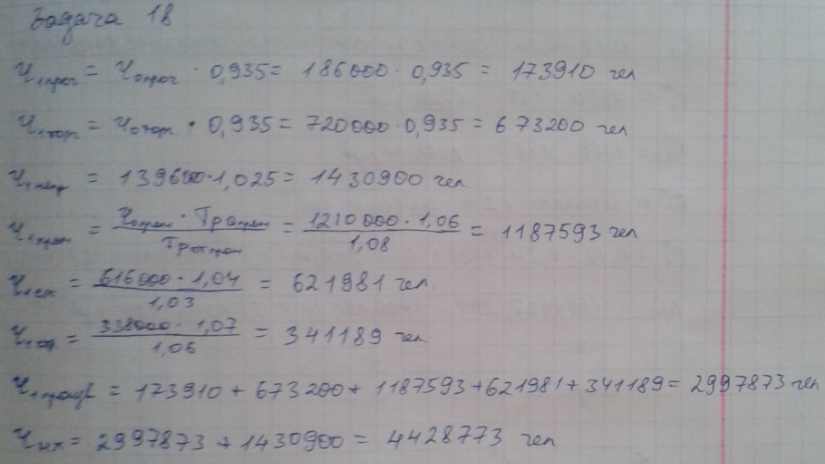 Задача 18
Ч₁проч = Ч₀проч · 0,935 = 186000 · 0,935 = 173910 чел
Ч₁торг = Ч₀торг · 0,935 = 720000 · 0,935 = 673200 чел
Ч₁непр = 1396000 · 1,025 = 1430900 чел.
Ч₁пром = Ч₀пром · Тр₀пром / Трптпром = 1210000 · 1,06 / 1,08 = 1187593 чел
Ч₁сх = 616000 · 1,04 / 1,03 = 621981 чел.
= 338000 · 1,07 / 1,06 = 341189 чел.
= 173910 + 673200 + 1187593 + 621981 + 341189 = 2997873 чел
Чнх = 2997873 + 1430900 = 4428773 чел